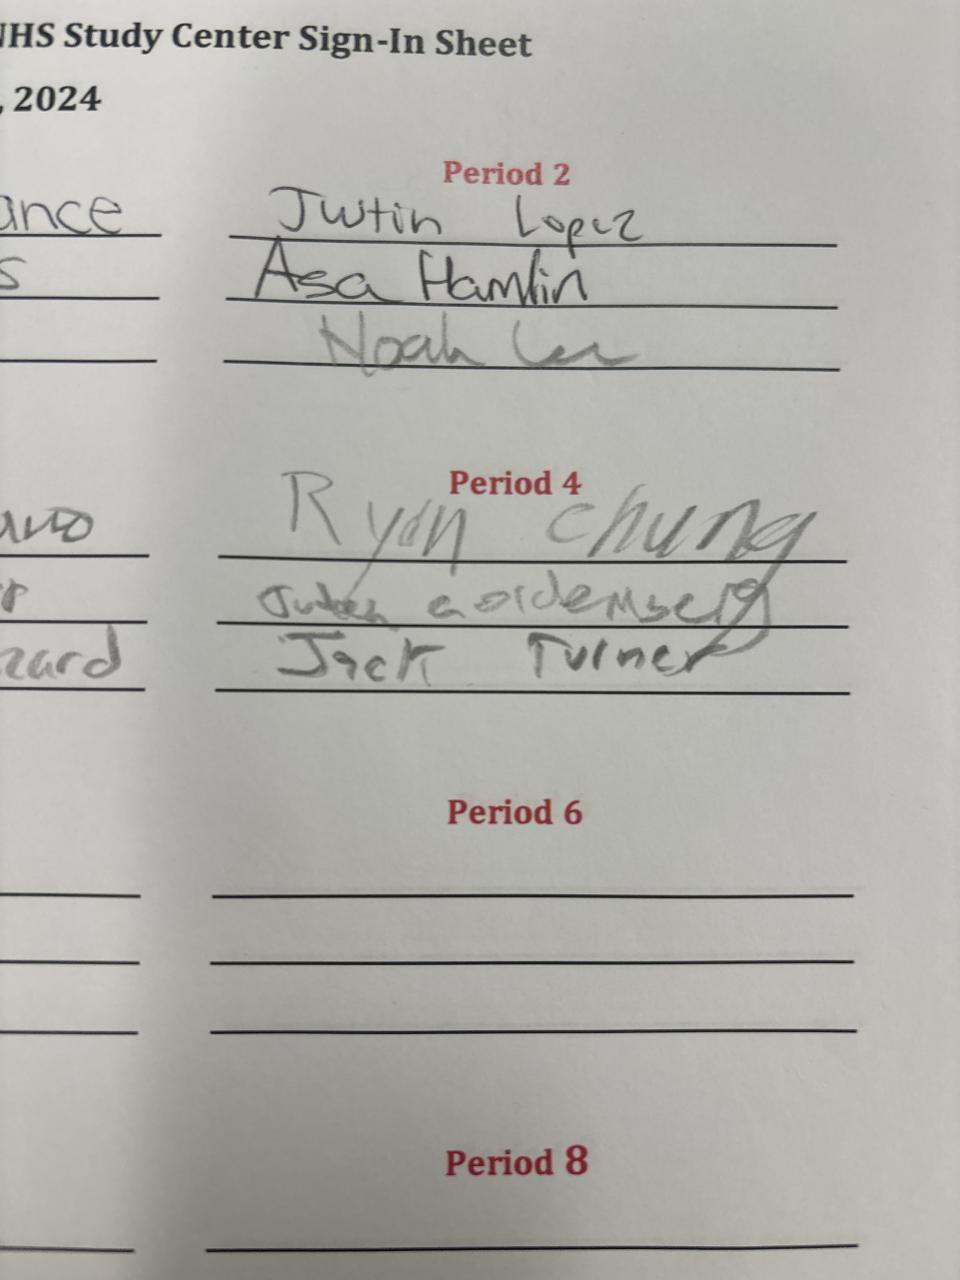 NHS Study Center Sign-In Sheet
, 2024
Period 2
ance Justin Lopez
s Asa Hamlin
Noah
Period 4
Ryan Chung
Goldemberg
zard Jack Turner
Period 6
Period 8